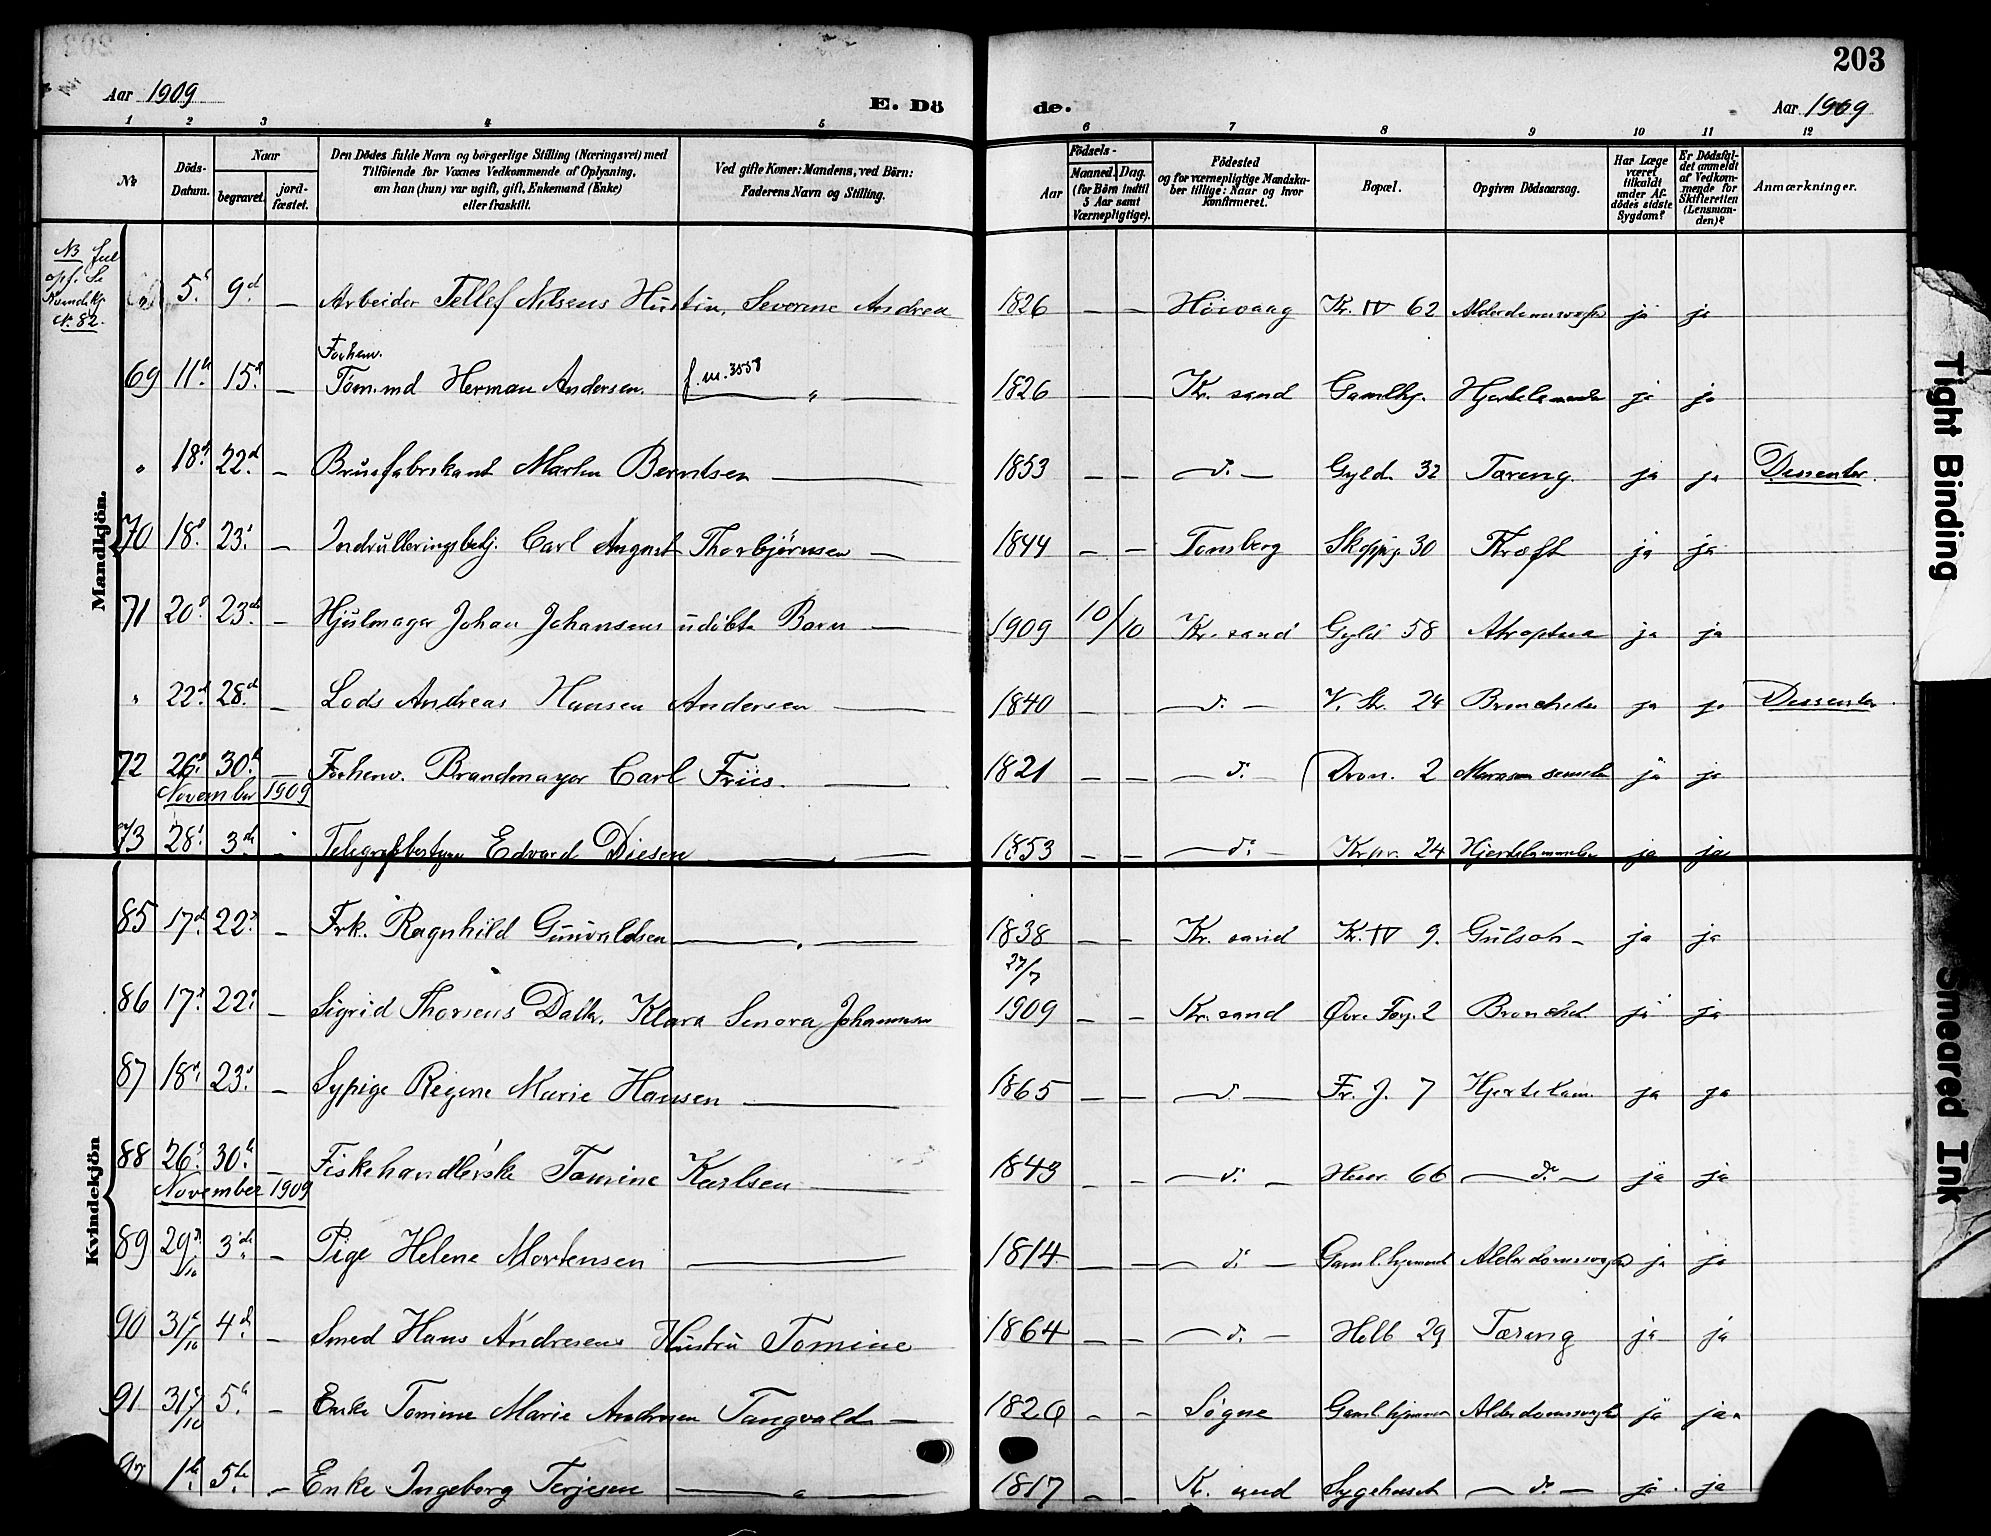 203
Aar 1909 E. Dö de. Aar 1909
1 2 3 4 5 6 7 8 9 10 11 12
No. Döds-Datum. Naar begravet. jord-fæstet. Den Dödes fulde Navn og borgerlige Stilling (Næringsvei) med Tilföiende for Voxnes Vedkommende af Oplysning, om han (hun) var ugift, gift, Enkemand (Enke) eller fraskilt. Ved gifte Koner: Mandens, ved Börn: Faderens Navn og Stilling. Födsels- Aar Maaned. Dag. (for Börn indtil 5 Aar samt Værnepligtige). Födested og for værnepligtige Mandskaber tillige: Naar og hvor Konfirmeret. Bopæl. Opgiven Dödsaarsag. Har Læge været tilkaldt under Afdödes sidste Sygdom? Er Dödsfaldet anmeldt af Vedkommende for Skifteretten (Lensmanden)? Anmærkninger.
NB
opf. Se
Kvindekj.
No. 82.
Mandkjön.
5. 9d – Arbeider Tellef Nilsens Hustru, Severine Andrea 1826 – – Höivaag Kr. IV 62 Alderdomssvaghed ja ja
69 11te 15d – Forhenv. Töm.md Herman Andersen. f. m. 3558 " 1826 – – Kr. sand Gamlhj. Hjertelammelse ja ja
" 18d 22d – Brusfabrikant Martin Berntsen 1853 – – do – Gyld. 32 Tæring. ja ja Dissenter.
70 18d 23d – Indrulleringsbetj. Carl August Thorbjørnsen – 1844 – – Tonsberg Skippg. 30 Kræft ja ja
71 20d 23de – Hjulmager Johan Johansens udöbte Barn – 1909 10/10 Kr. sand Gyld 58 Atrophia ja ja
" 22d 28d – Lods Andreas Hansen Andersen – 1840 – – do – V. Str. 24 Bronchitis ja ja Dissenter
72 26d 30te – Forhenv. Brandmayor Carl Friis. – 1821 – – do – Dron. 2 Marasmus senilis ja ja
November 1909
73 28d 3die – Telegrafbestyrer Edvard Diesen – 1853 – – do – Krpr. 24 Hjertelammelse ja ja
Kvindekjön
85 17d 22d – Frk. Ragnhild Gunvaldsen – 1838 – – Kr. sand Kr. IV 9. Gulsot – ja ja
86 17d 22d – Sigrid Thorsens Datter, Klara Senora Johannesen 27/7 1909 – – Kr. sand Øvre Torg. 2 Bronchit. ja ja
87 18d 23d – Sypige Regine Marie Hansen – 1865 – – do – Fr. J. 7 Hjertelam. ja ja
88 26d 30te – Fiskehandlerske Tomine Karlsen – 1843 – – do – Henr. 66 – do – ja ja
November 1909
89 29d/10 3die – Pige Helene Mortensen – 1814 – – do – Gaml.hjemmet Alderdomssvaghed ja ja
90 31te/10 4de – Smed Hans Andresens Hustru Tomine 1864 – – do – Holb 29 Tæring ja ja
91 31te/10 5te – Enke Tomine Marie Andersen Tangvald – 1826 – – Søgne Gaml.hjemmet Alderdomssvaghed ja ja
1ste 5te – Enke Ingeborg Terjesen – " – 1817 – – Kr. sand Sygehuset – do – ja ja
Tight Binding
Smeared Ink